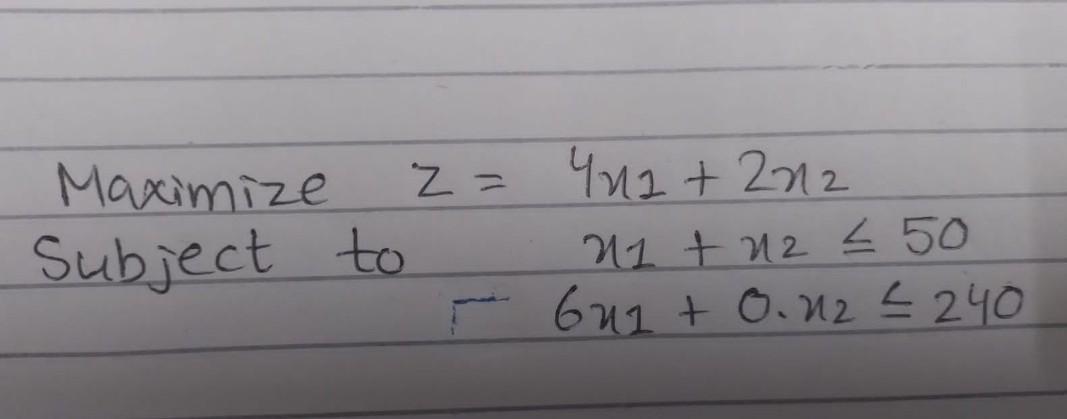 Maximize Z = 4x1 + 2x2
Subject to x1 + x2 ≤ 50
6x1 + 0.x2 ≤ 240